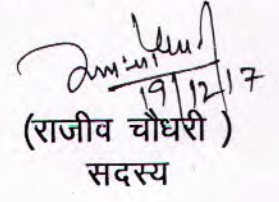 19/12/17
(राजीव चौधरी )
सदस्य